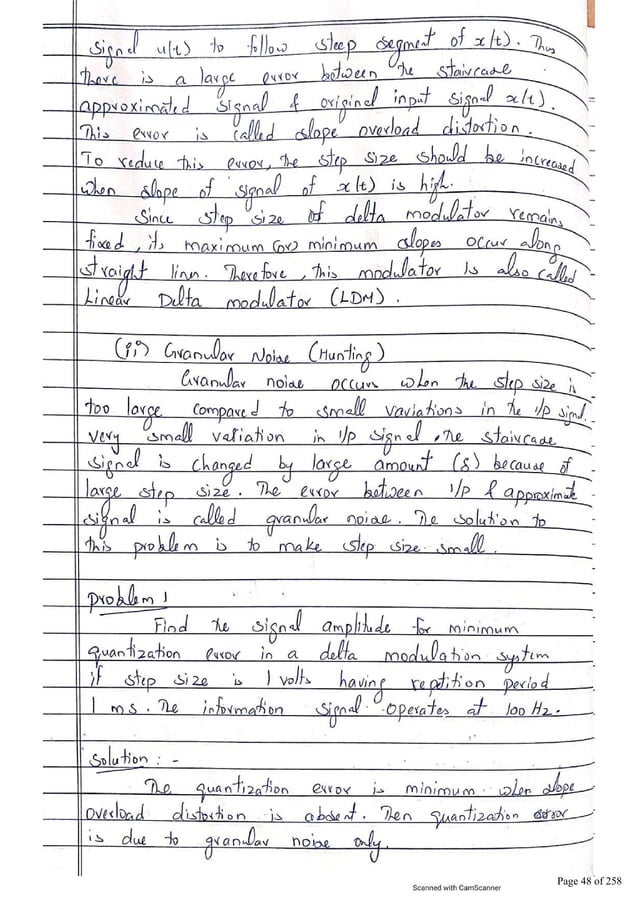 Signal u(t) to follow steep segment of x(t). Thus
there is a large error between the staircase
approximated signal & original input signal x(t).
This error is called slope overload distortion.
To reduce this error, the step size should be increased
when slope of signal of x(t) is high.
Since step size of delta modulator remains
fixed, its maximum (or) minimum slopes occur along
straight lines. Therefore, this modulator is also called
Linear Delta modulator (LDM).
(ii) Granular Noise (Hunting)
Granular noise occurs when the step size is
too large compared to small variations in the i/p signal.
very small variation in i/p signal, the staircase
signal is changed by large amount (δ) because of
large step size. The error between i/p & approximate
signal is called granular noise. The solution to
this problem is to make step size small.
Problem 1
Find the signal amplitude for minimum
quantization error in a delta modulation system
if step size is 1 volts having repetition period
1 ms. The information signal operates at 100 Hz.
Solution : -
The quantization error is minimum when slope
overload distortion is absent. Then quantization error
is due to granular noise only.
Scanned with CamScanner
Page 48 of 258